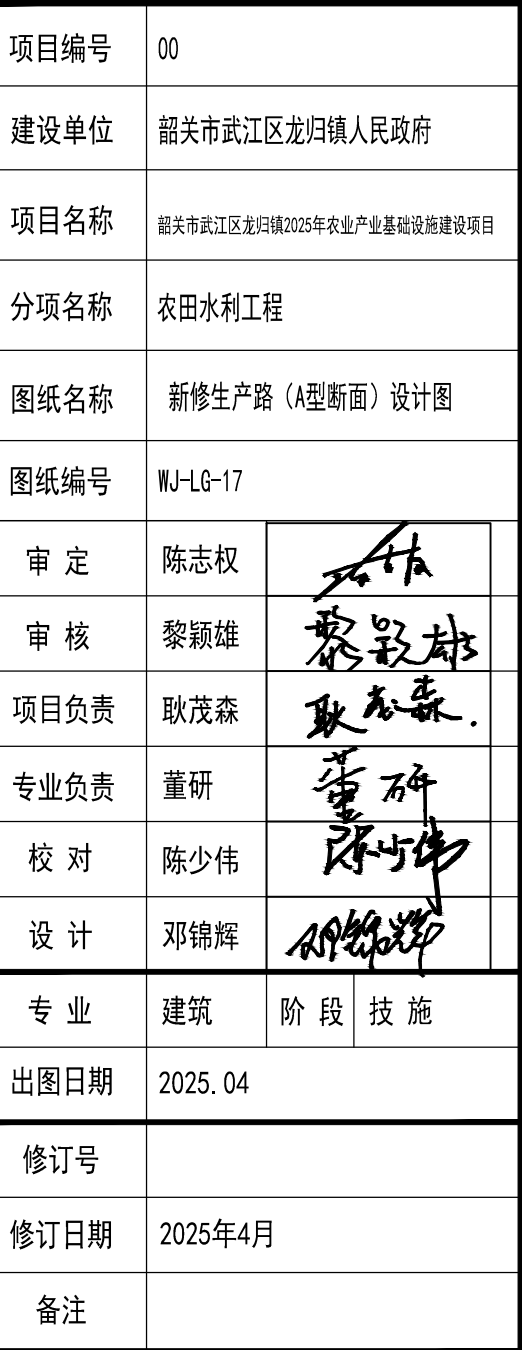 项目编号 00
建设单位 韶关市武江区龙归镇人民政府
项目名称 韶关市武江区龙归镇2025年农业产业基础设施建设项目
分项名称 农田水利工程
图纸名称 新修生产路（A型断面）设计图
图纸编号 WJ-LG-17
审 定 陈志权
审 核 黎颖雄 黎颖雄
项目负责 耿茂森 耿茂森.
专业负责 董研 董研
校 对 陈少伟 陈少伟
设 计 邓锦辉 邓锦辉
专 业 建筑 阶 段 技 施
出图日期 2025.04
修订号
修订日期 2025年4月
备注